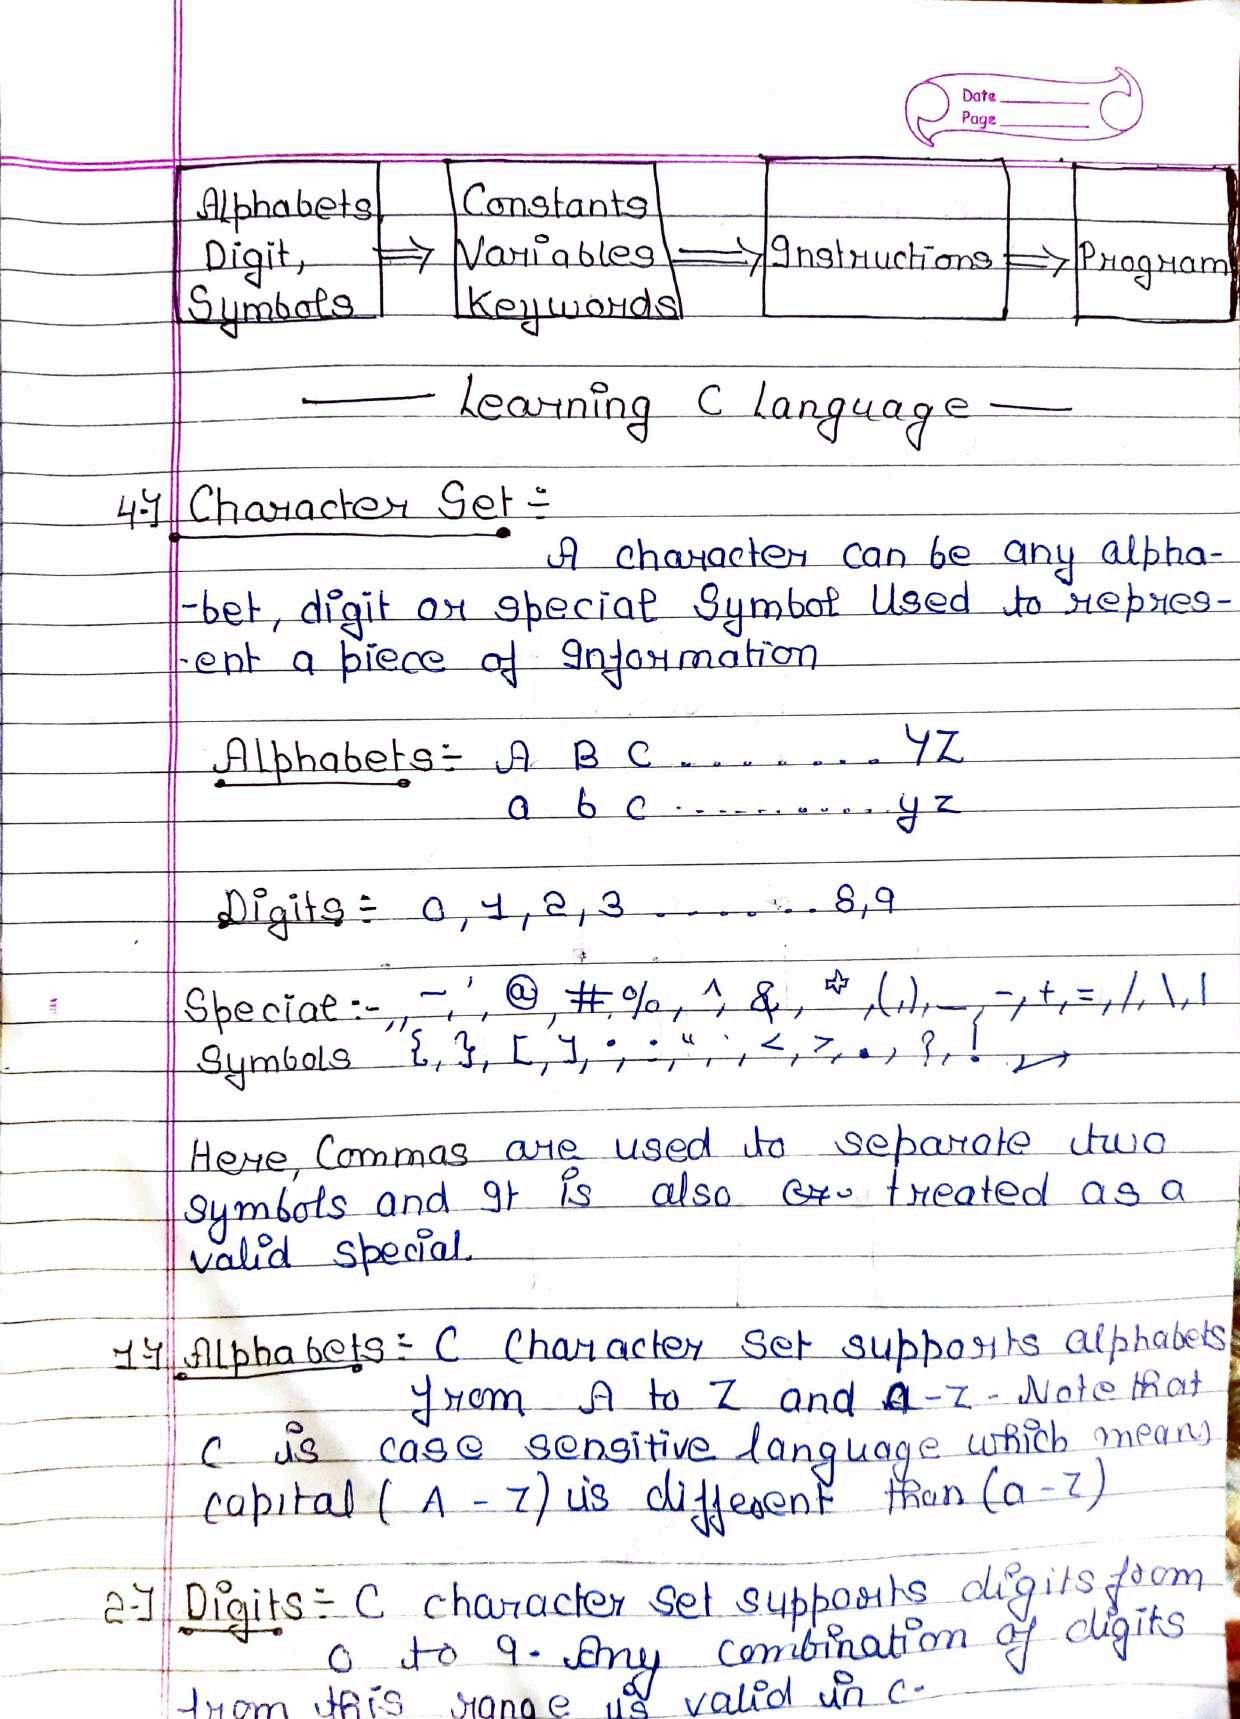 Date
Page
Alphabets, Digit, Symbols ⇒ Constants Variables Keywords ⇒ Instructions ⇒ Program
— Learning C Language —
4.) Character Set :-
A character can be any alpha-
-bet, digit or special Symbol Used to repres-
-ent a piece of Information
Alphabets :- A B C ........ YZ
a b c ........... yz
Digits :- 0, 1, 2, 3 ....... 8, 9
Special :- , ~, ', @, #, %, ^, &, *, (,), _, -, +, =, /, \, |
Symbols {, }, [, ], ;, :, ", ', <, >, ., ?, !
Here, Commas are used to separate two
symbols and It is also treated as a
valid special.
1.) Alphabets :- C Character Set supports alphabets
from A to Z and a-z. Note that
C is case sensitive language which means
capital (A - Z) is different than (a-z)
2.) Digits :- C character set supports digits from
0 to 9. Any combination of digits
from this range is valid in c.